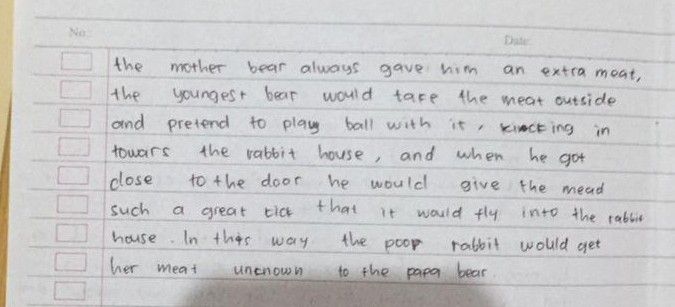 No:
Date:
the mother bear always gave him an extra meat,
the youngest bear would take the meat outside
and pretend to play ball with it, kincking in
towars the rabbit house, and when he got
close to the door he would give the mead
such a great tick that it would fly into the rabbit
house. In this way the poor rabbit would get
her meat unknown to the papa bear